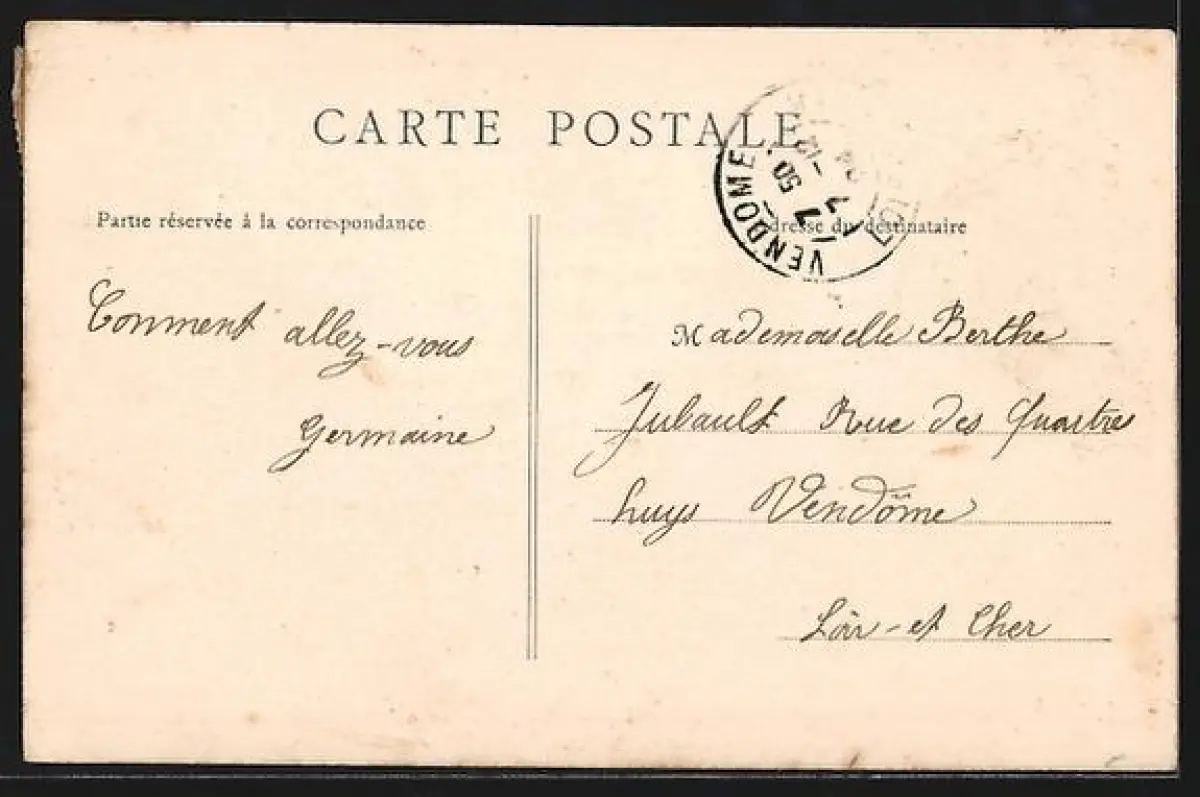 CARTE POSTALE
VENDOME
Partie réservée à la correspondance
Adresse du destinataire
Comment allez-vous
Germaine
Mademoiselle Berthe
Jubault Rue des Quatres
huys Vendôme
Loir-et Cher